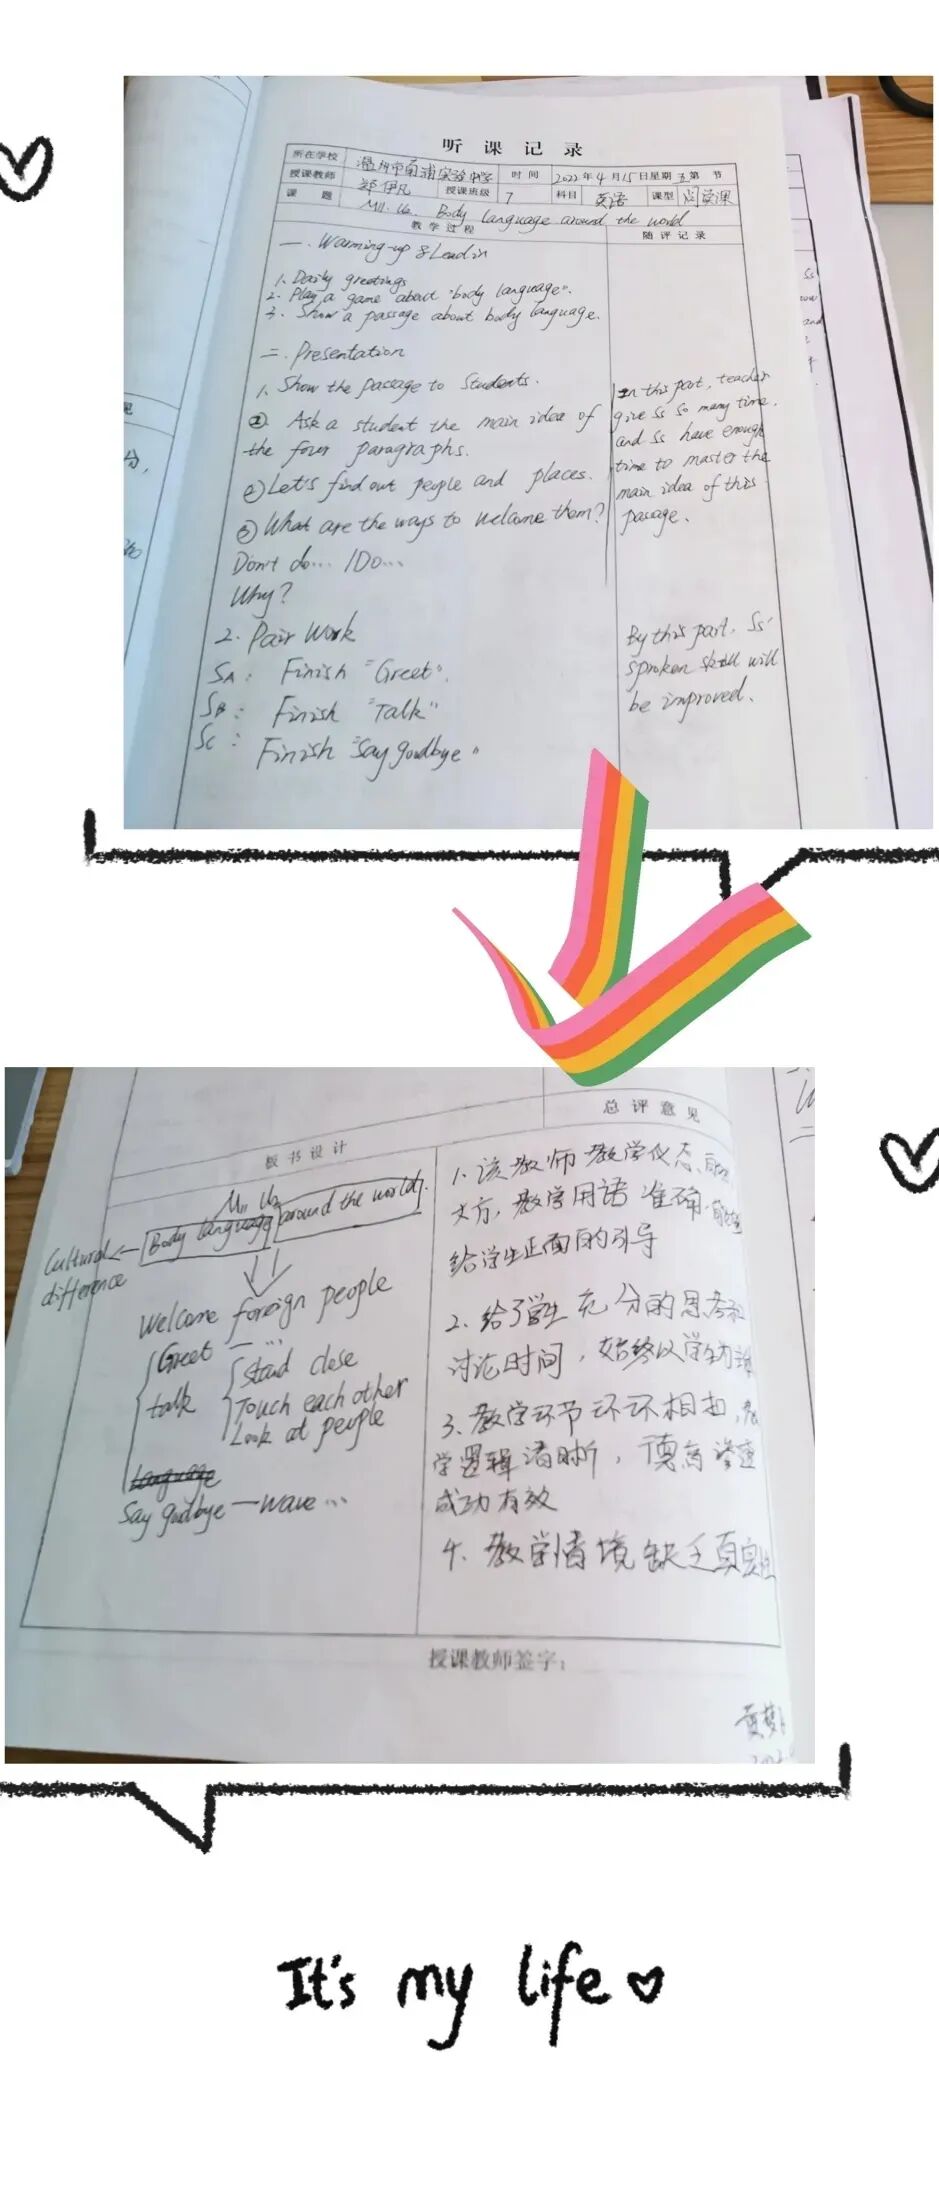 听课记录
所在学校 温州市南浦实验中学 时间 2022年4月15日星期五第 节
授课教师 郑伊凡 授课班级 7 科目 英语 课型 阅读课
课题 M11. U2. Body language around the world
教学过程 随评记录
一. Warming-up & Lead in
1. Daily greetings
2. Play a game about "body language".
3. Show a passage about body language.
二. Presentation
1. Show the passage to students.
① Ask a student the main idea of
the four paragraphs.
② Let's find out people and places.
③ What are the ways to welcome them?
Don't do... / Do...
Why?
2. Pair Work
SA: Finish "Greet".
SB: Finish "Talk"
SC: Finish "Say goodbye"
In this part, teacher
give Ss so many time.
and Ss have enough
time to master the
main idea of this
passage.
By this part, Ss'
spoken skill will
be improved.
Ss
and
板书设计
M11 U2
Body language around the world.
Cultural
difference
Welcome foreign people
Greet — ...
talk
Stand close
Touch each other
Look at people
Language
Say goodbye — wave ...
总评意见
1. 该教师教学仪态
大方, 教学用语准确,
给学生正面的引导
2. 给了学生充分的思考和
讨论时间, 始终以学生为主
3. 教学环节环环相扣, 教
学逻辑清晰, 德育渗透
成功有效
4. 教学情境缺乏真实性
授课教师签字:
It's my life